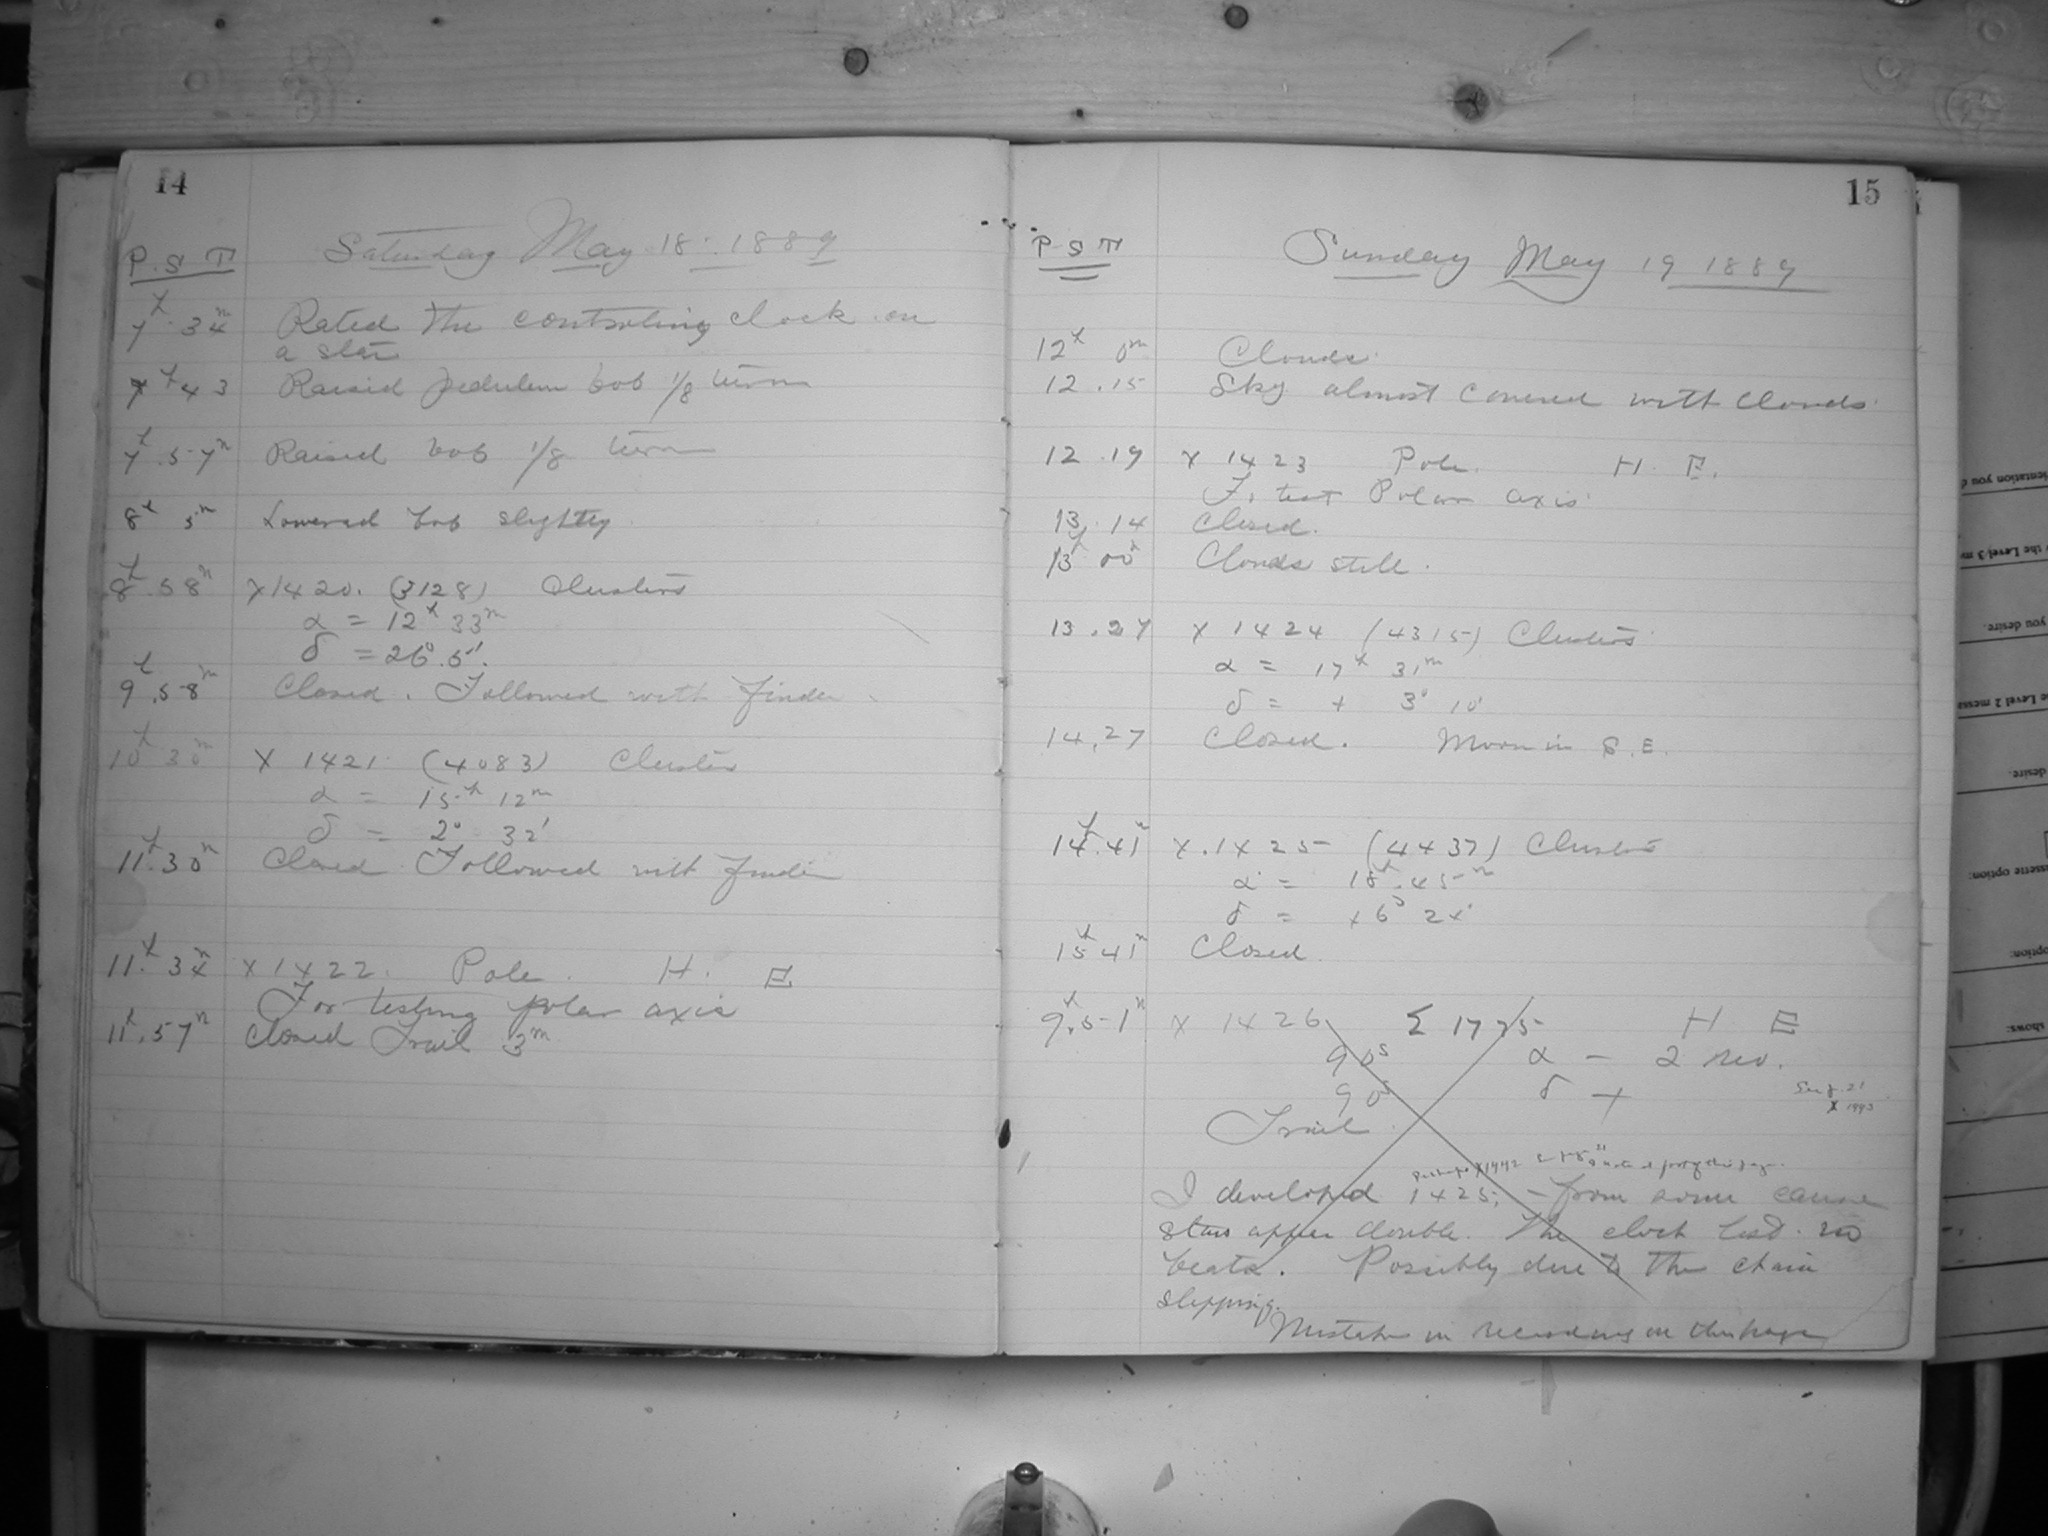 14
Saturday May 18. 1889
P. S T
7h 34m Rated the controling clock on
a star
7h 43 Raised pedulum bob 1/8 turn
7h.57m Raised bob 1/8 turn
8h 5m Lowered bob slightly
8h.58m X1420. (3128) Clusters
α = 12h 33m
δ = 26°.5'.
9h.58m Closed. Followed with finder.
10h 30m X 1421 (4083) Cluster
α = 15h 12m
δ = 2° 32'
11h.30m Closed Followed with finder
11h.34m X1422. Pole. H. E
For testing polar axis
11h.57m Closed Trail 3m
15
P S T
Sunday May 19 1889
12h 0m Clouds.
12.15 Sky almost covered with clouds.
12.19 X 1423 Pole. H. E.
To test Polar axis.
13.14 Closed.
13h 00m Clouds still.
13.27 X 1424 (4315) Clusters
α = 17h 31m
δ = + 3° 10'
14.27 Closed. Moon in S.E.
14h.41m X.1425 (4437) Clusters
α = 18h.45m
δ = +6° 24'
15h 41m Closed.
9h.51m X 1426 Σ 1775 H E
90s α - 2 rev.
90s δ +
X 1993
Trail.
X1442
I developed 1425, - from some cause
stars appear double. The clock lost no
beats. Possibly due to the chain
slipping.
Mistake in recording on this page